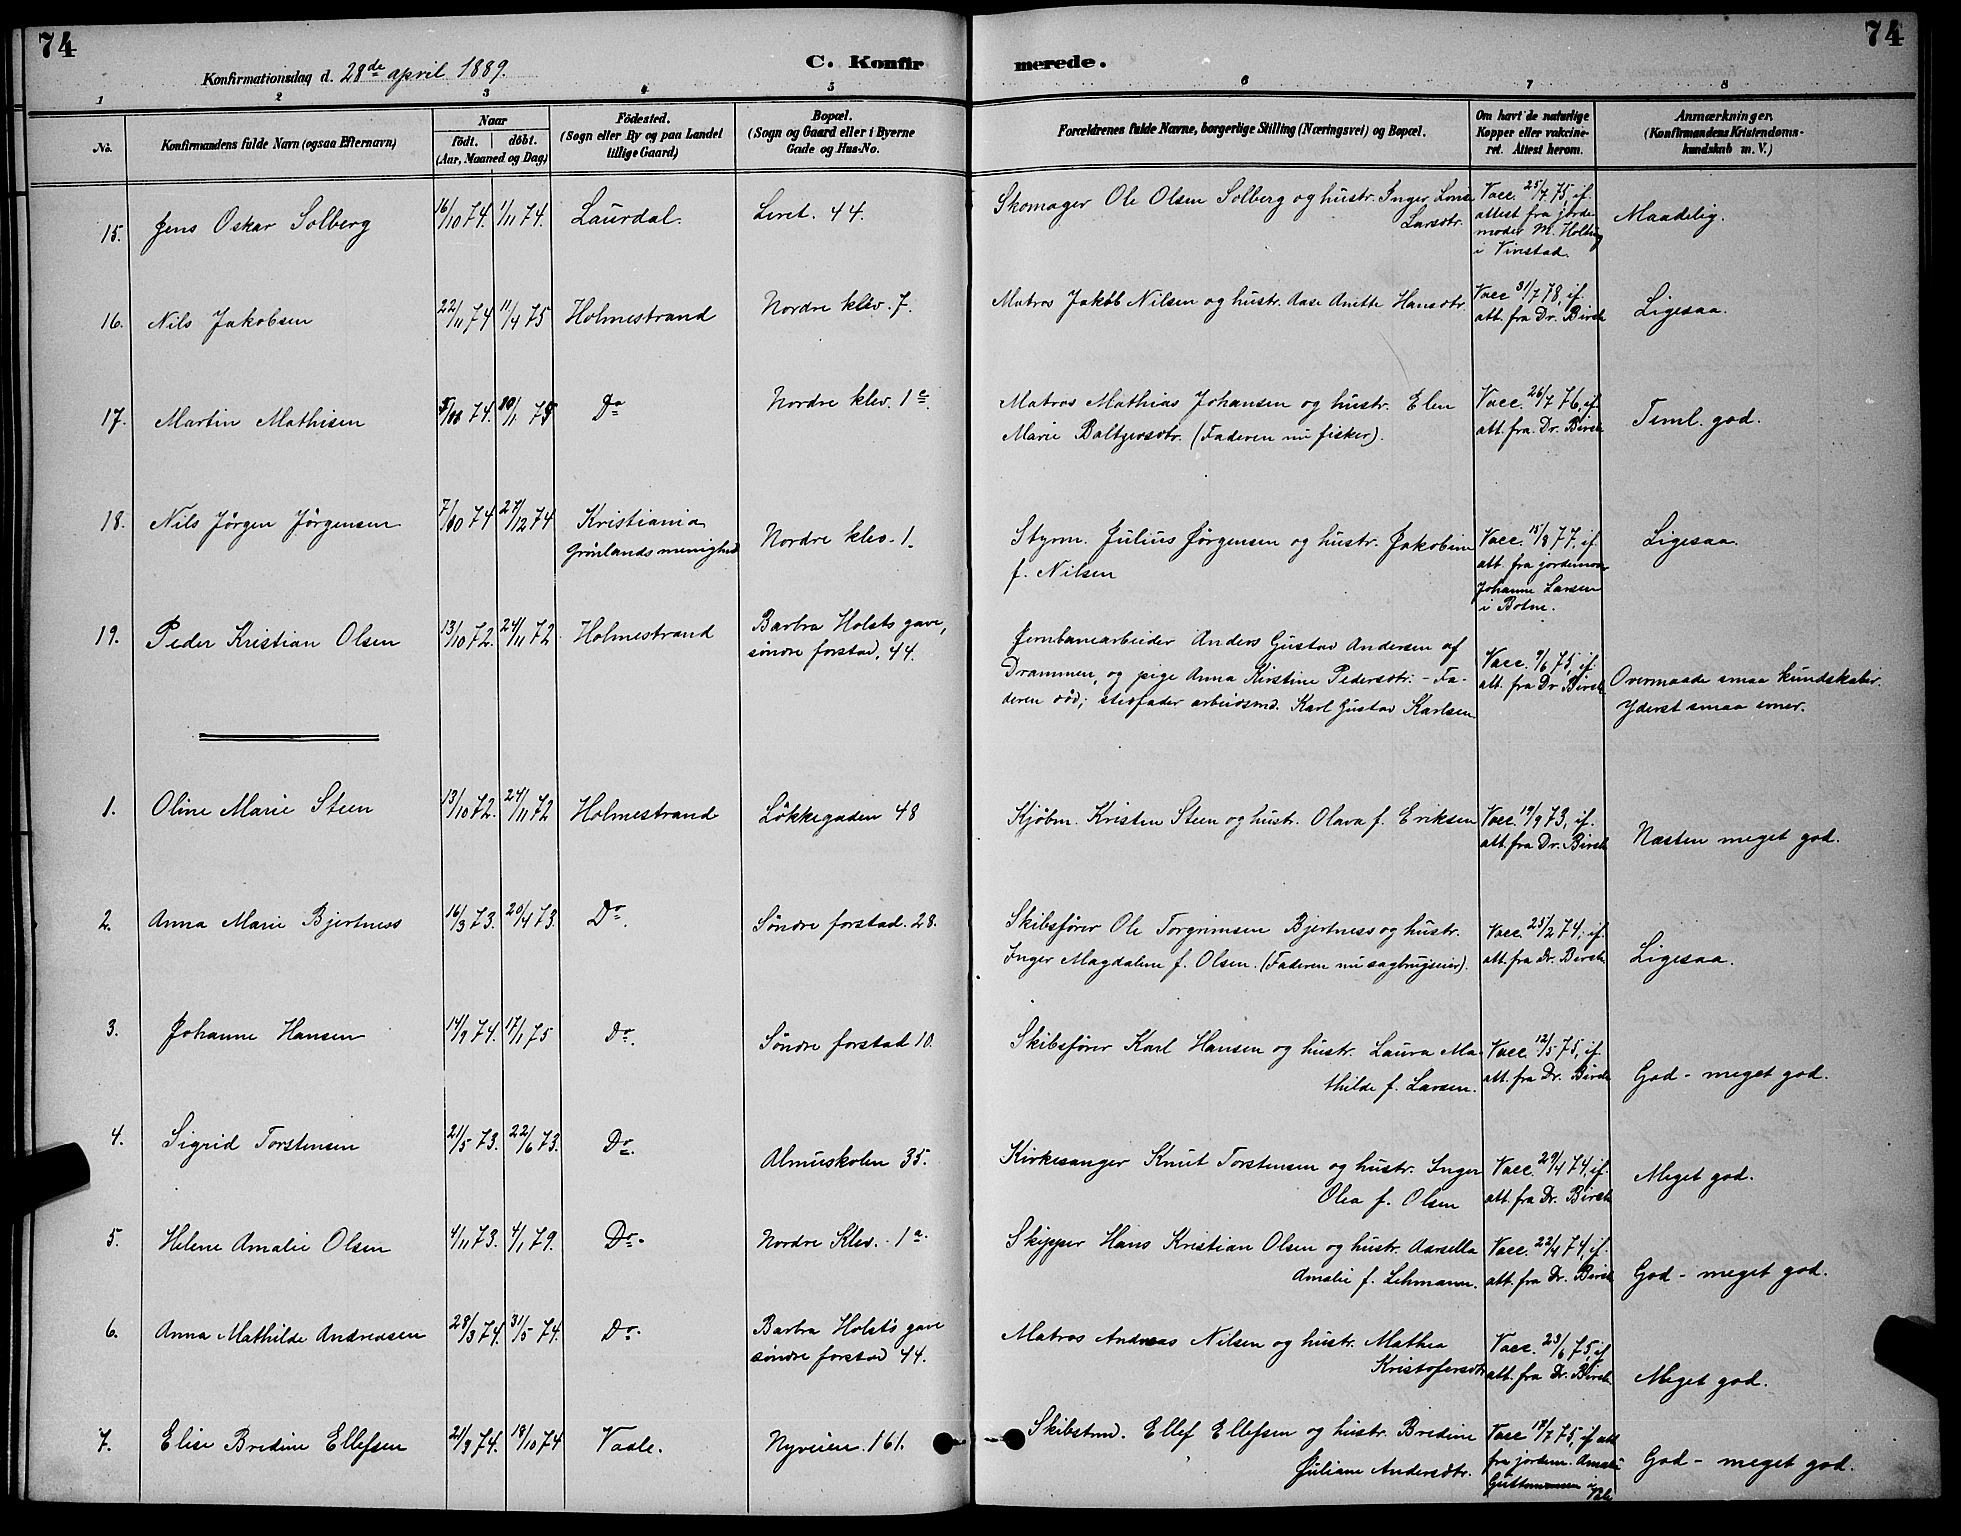 74
74
Konfirmationsdag d. 28de april 1889.
C. Konfir
merede.
1 2 3 4 5 6 7 8
No.
Konfirmandens fulde Navn (ogsaa Efternavn)
Naar
födt. döbt.
(Aar, Maaned og Dag)
Födested.
(Sogn eller By og paa Landet
tillige Gaard)
Bopæl.
(Sogn og Gaard eller i Byerne
Gade og Hus-No.
Forældrenes fulde Navne, borgerlige Stilling (Næringsvei) og Bopæl.
Om havt de naturlige
Kopper eller vaccine-
ret. Attest herom.
Anmærkninger.
(Konfirmandens Kristendoms-
kundskab m. V.)
15. Jens Oskar Solberg 16/10 74. 1/11 74. Laurdal. Leret. 44.
Skomager Ole Olsen Solberg og hustr. Inger Lovise
Larsdtr.
Vacc. 25/7 75, if.
attest fra jorde
moder M. Holtung
i Vivestad.
Maadelig.
16. Nils Jakobsen 22/11 74 11/4 75 Holmestrand Nordre klev. 7.
Matros Jakob Nilsen og hustr. Aase Anette Hansdtr.
Vacc 31/7 78, if.
att. fra Dr. Birch
Ligesaa.
17. Martin Mathisen 74. 75 Do Nordre klev. 1c.
Matros Mathias Johansen og hustr. Elen
Marie Baltzersdtr. (Faderen nu fisker).
Vacc. 26/7 76, if.
att. fra. Dr. Birch
Teml. god.
18. Nils Jörgen Jörgensen 7/10 74 27/12 74 Kristiania
Grönlands menighed
Nordre klev. 1.
Styrm. Julius Jörgensen og hustr. Jakobine
f. Nilsen
Vacc. 15/8 77, if.
att. fra gordemoder
Johanne Larsen
i Botne.
Ligesaa.
19. Peder Kristian Olsen 13/10 72. 24/11 72. Holmestrand
Barbra Holsts gave,
söndre forstad, 44.
Jernbanearbeider Anders Gustav Andersen af
Drammen, og pige Anna Kirstine Pedersdtr. - Fa-
deren död; stedfader arbeidsmd. Karl Gustav Karlsen
Vacc. 9/6 75, if.
att. fra Dr. Birch
Overmaade smaa kundskaber.
Yderst smaa evner.
1. Oline Marie Steen 13/10 72. 24/11 72 Holmestrand Lökkegaden 48
Kjöbm. Kristen Steen og hustr. Olava f. Eriksen
Vacc. 19/9 73, if.
att. fra Dr. Birch
Næsten meget god.
2. Anna Marie Bjertness 16/3 73. 20/4 73. Do. Söndre forstad. 28.
Skibsförer Ole Torgrimsen Bjertness og hustr.
Inger Magdalene f. Olsen. (Faderen nu sagbrugseier).
Vacc. 25/2 74, if.
att. fra Dr. Birch
Ligesaa.
3. Johanne Hansen 14/9 74. 17/1 75 Do. Söndre forstad 10.
Skibsförer Karl Hansen og hustr. Laura Ma-
thilde f. Larsen.
Vacc. 12/5 75, if.
att. fra Dr. Birch
God - meget god.
4. Sigrid Torstensen 21/5 73. 22/6 73. Do. Almueskolen 35.
Kirkesanger Knut Torstensen og hustr. Inger
Olea f. Olsen
Vacc. 29/4 74, if.
att. fra Dr. Birch
Meget god.
5. Helene Amalie Olsen 4/11 73. 4/1 79. Do. Nordre Klev. - 1a.
Skipper Hans Kristian Olsen og hustr. Aarsella
Amalie f. Lehmann.
Vacc. 22/4 74, if.
att. fra Dr. Birch
God - meget god.
6. Anna Mathilde Andreasen 28/3 74. 31/5 74. Do.
Barbra Holsts gave
söndre forstad 44.
Matros Andreas Nilsen og hustr. Mathea
Kristofersdtr.
Vacc. 23/6 75, if
att. fra Dr. Birch
Meget god.
7. Elise Bredine Ellefsen 21/9 74. 18/10 74 Vaale. Nyveien. 161.
Skibstmd. Ellef Ellefsen og hustr. Bredine
Juliane Andersdtr.
Vacc 17/7 75, if att
fra jordem. Amalie
i Vale
God - meget god.